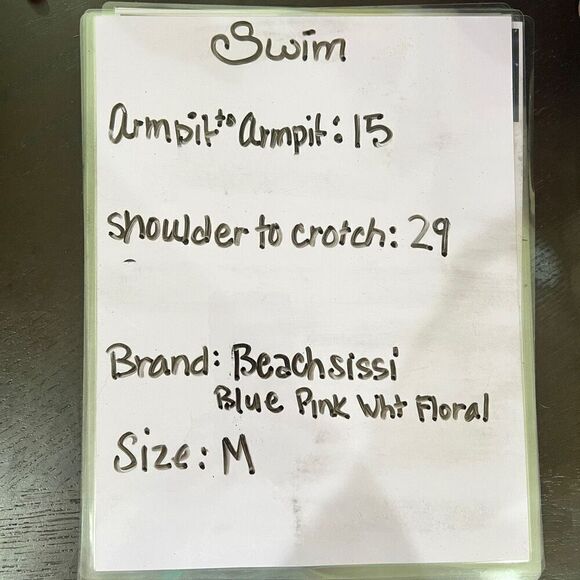 Swim
Armpit to Armpit: 15
shoulder to crotch: 29
Brand: Beachsissi
Blue Pink Wht Floral
Size: M